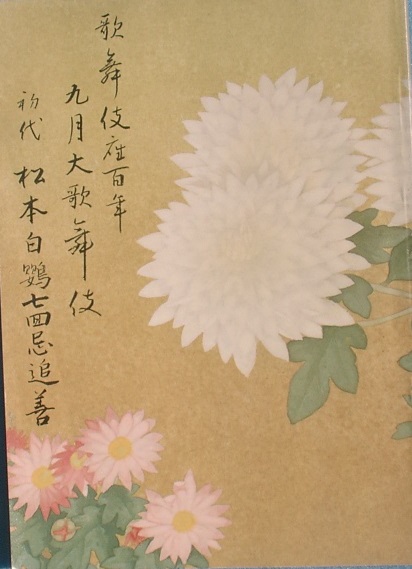 歌舞伎座百年
九月大歌舞伎
初代 松本白鸚七回忌追善